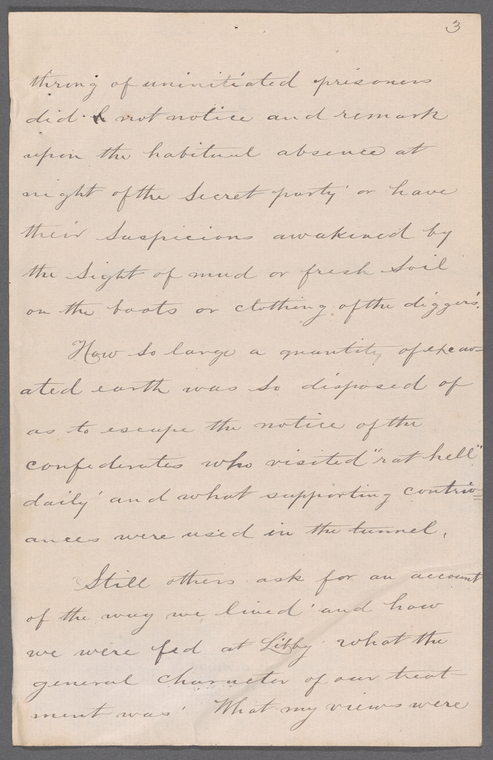 3
throng of uninitiated prisoners
did not notice and remark
upon the habitual absence at
night of the Secret party or have
their Suspicions awakened by
the Sight of mud or fresh Soil
on the boots or clothing of the diggers.
How So large a quantity of excav-
ated earth was So disposed of
as to escape the notice of the
confederates who visited "rat hell"
daily' and what supporting contriv=
ances were used in the tunnel.
Still others ask for an account
of the way we lived' and how
we were fed at Libby. what the
general character of our treat-
ment was' What my views were